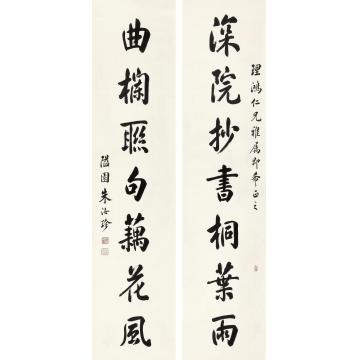 深院抄書桐葉雨
理鴻仁兄雅屬即希正之
曲欄聯句藕花風
隘園朱汝珍